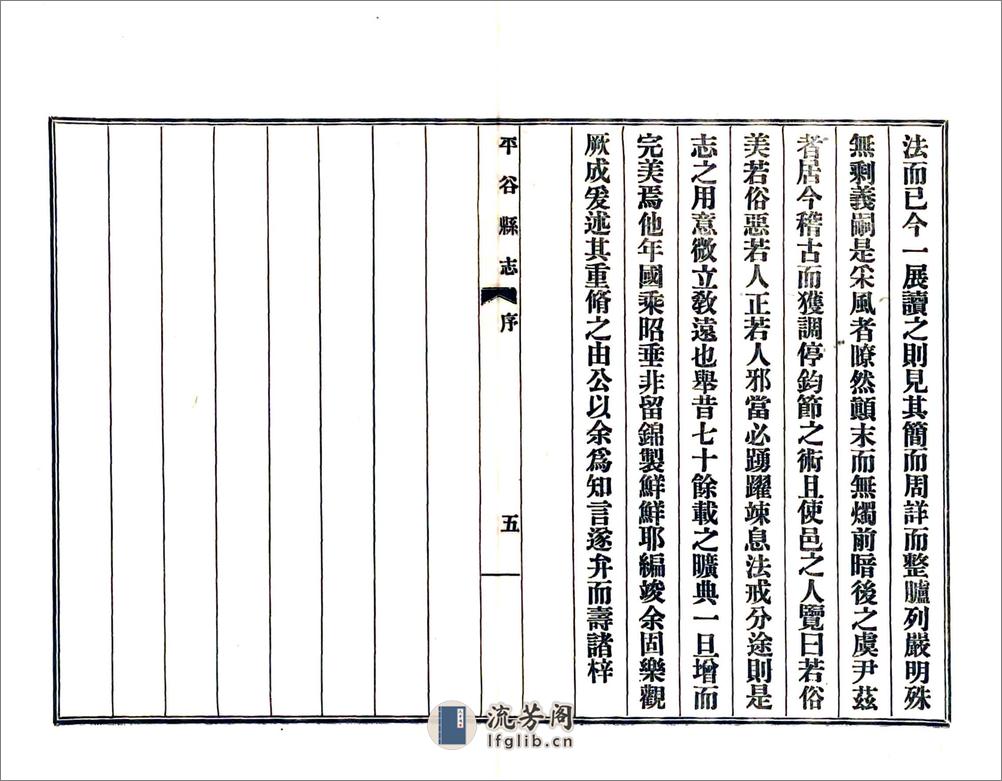 法而已今一展讀之則見其簡而周詳而整臚列嚴明殊
無剩義嗣是采風者瞭然顚末而無燭前暗後之虞尹茲
者居今稽古而獲調停鈞節之術且使邑之人覽曰若俗
美若俗惡若人正若人邪當必踴躍竦息法戒分途則是
志之用意微立敎遠也舉昔七十餘載之曠典一旦增而
完美焉他年國乘昭垂非留錦製鮮鮮耶編竣余固樂觀
厥成爰述其重脩之由公以余爲知言遂弁而壽諸梓
平谷縣志 序 五
流芳阁
lfglib.cn